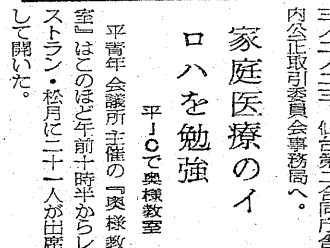 三／二八二三 仙台第二合同庁舎
内公正取引委員会事務局へ。
家庭医療のイ
ロハを勉強
平JCで奥様教室
平青年会議所主催の『奥様教
室』はこのほど午前十時半からレ
ストラン・松月に二十一人が出席
して開いた。